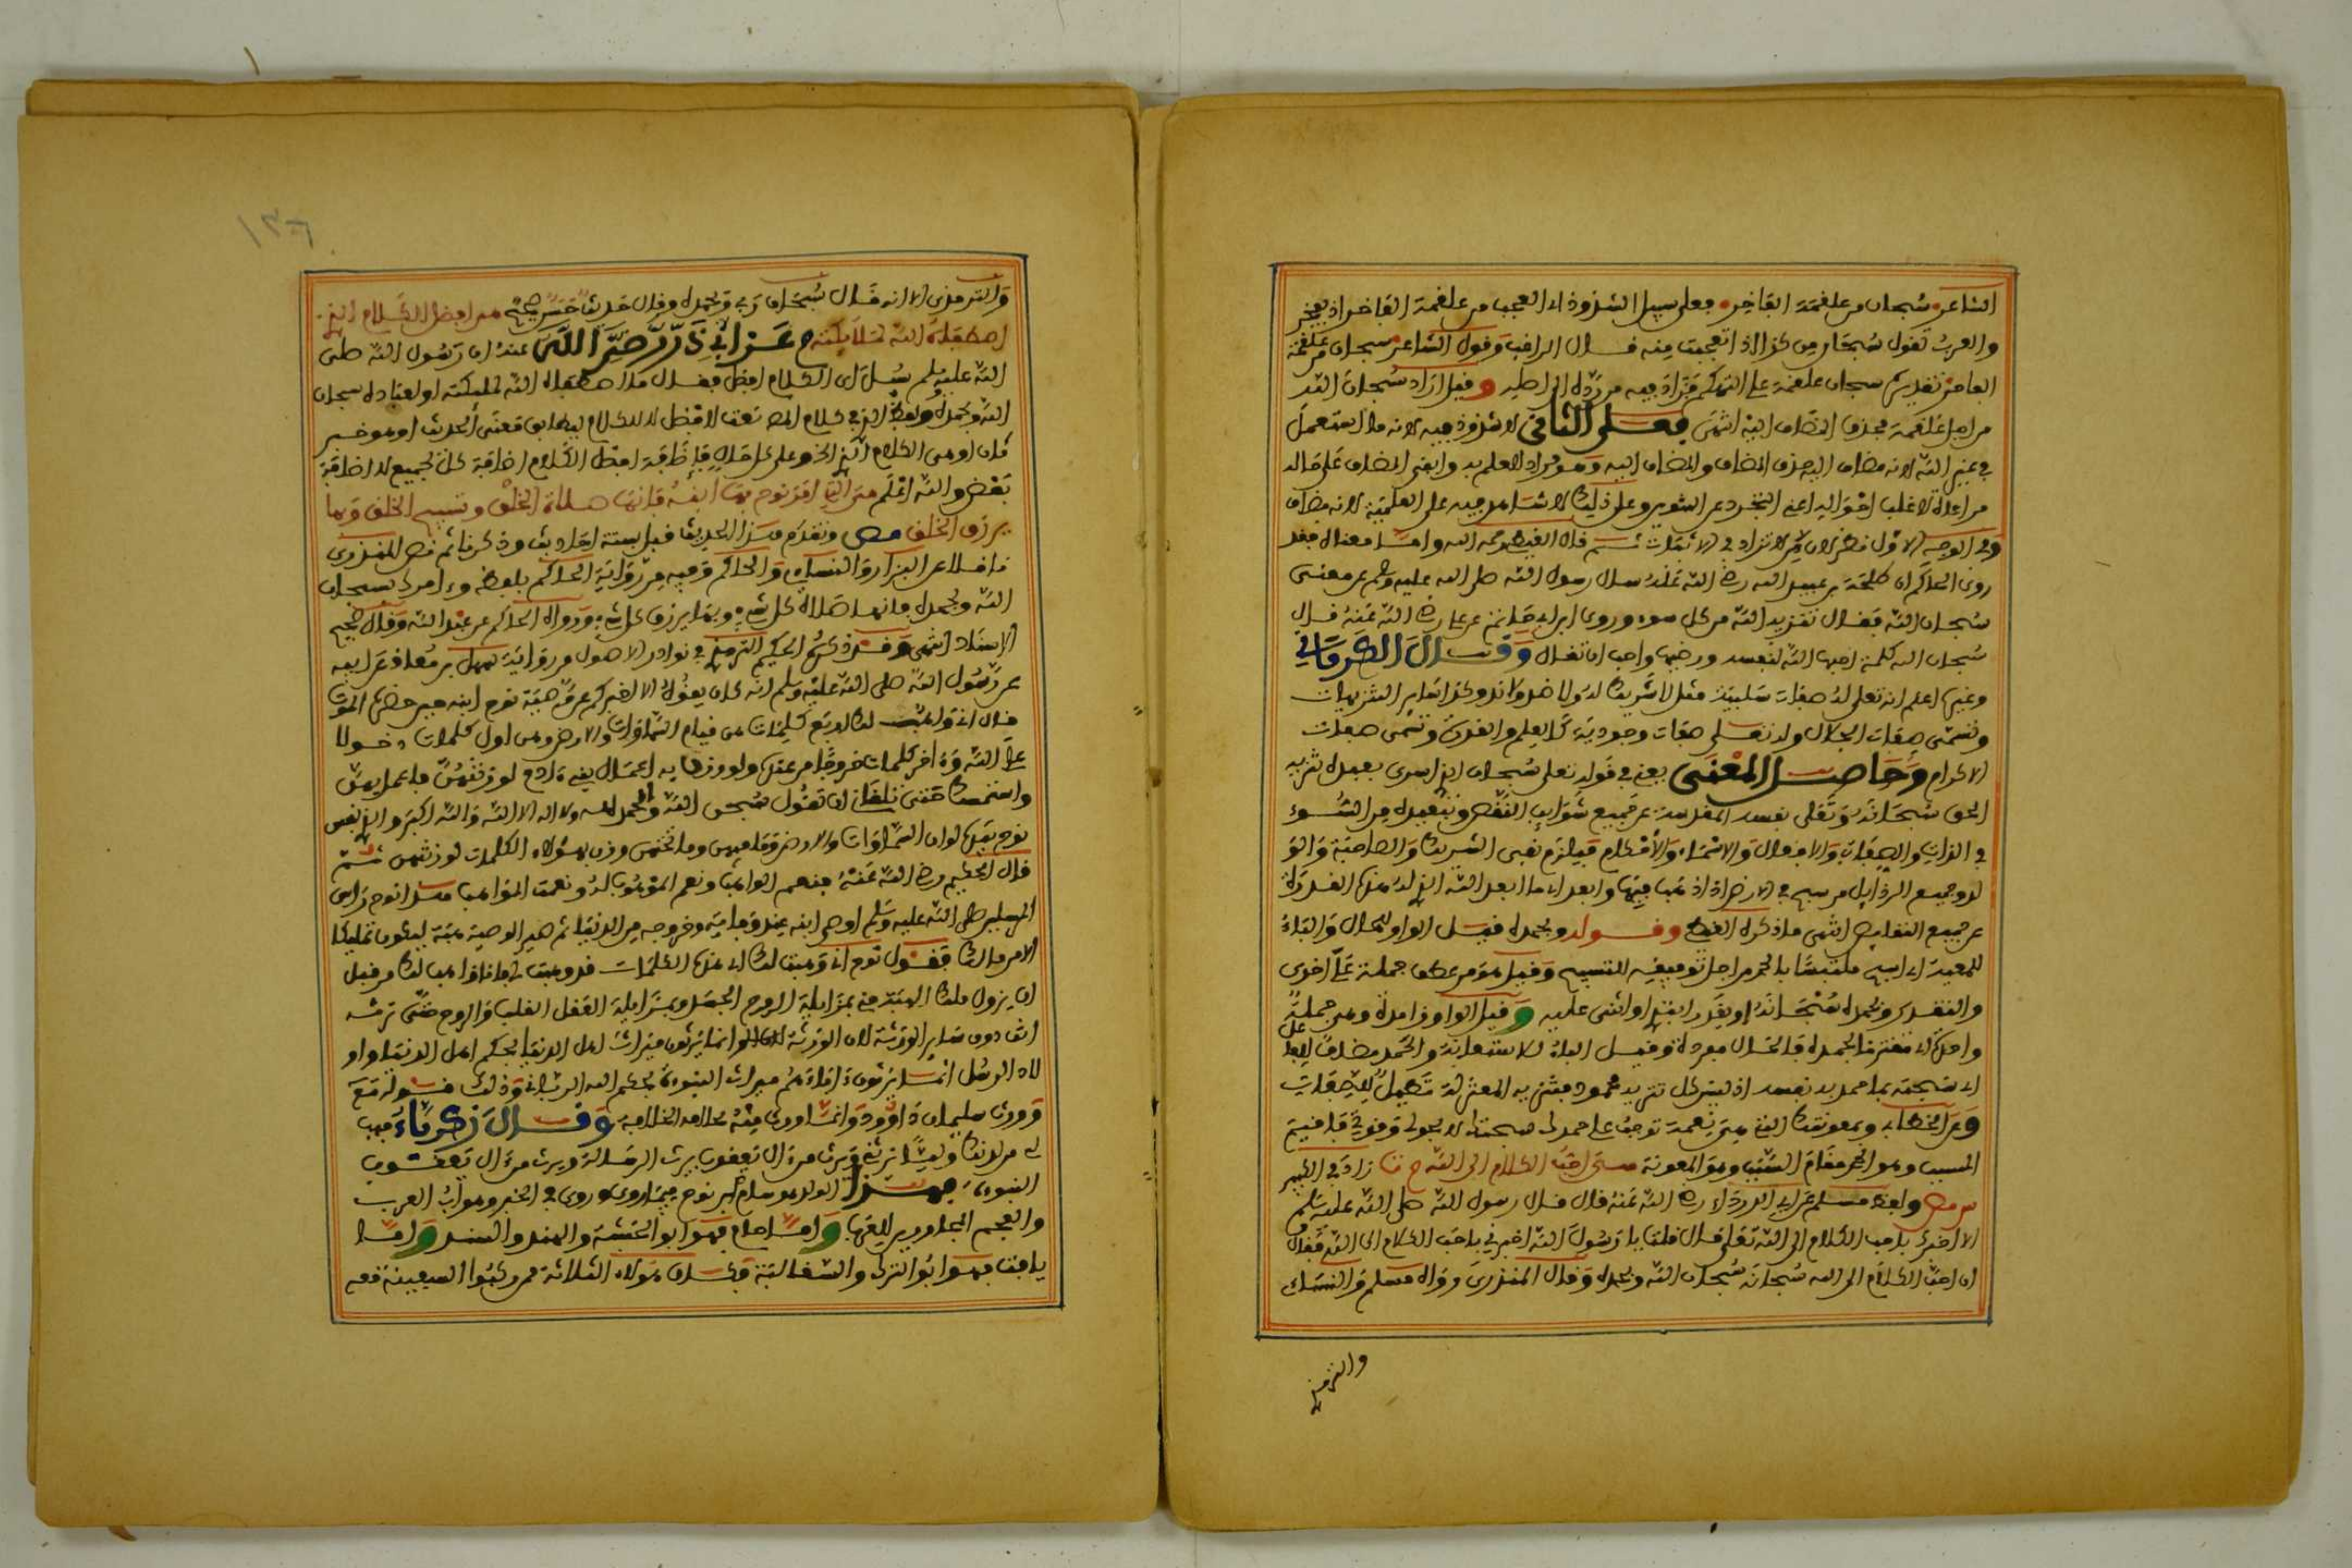 الشاعر سبحان من علقمة الفاخر فعلى سبيل الشذوذ اي العجب من علقمة الفاخر اذ يفخر
والعرب تقول سبحان من كذا اذا تعجبت منه قال الراغب وقول الشاعر سبحان من علقمة
الفاخر تقديره سبحان علقمة على التهكم فزاد فيه من ردّه الى اصله وقيل اراد سبحان الله
من اجل علقمة فحذف المضاف اليه انتهى فعلى الثاني لا شذوذ فيه لانه ما استعمل
في غير الله لانه مضاف اليه حذف المضاف والمضاف اليه وهو مراد للعلم به وابقى المضاف على حاله
مراعاة لاغلب احواله اعني التجرد عن التنوين وعلى ذلك لا شاهد فيه على العلمية لانه مضاف
وفي الوجه الاول نظر لان من لا تزاد في الاثبات ثم قال رحمه الله واما معناه فقد
روى الحاكم ان طلحة بن عبيد الله رضي الله عنه سال رسول الله صلى الله عليه وسلم عن معنى
سبحان الله فقال تنزيه الله من كل سوء وروى ابن ابي حاتم عن علي رضي الله عنه قال
سبحان الله كلمة احبها الله لنفسه ورضيها واحب ان تقال وقال الكرماني
وغيره اعلم ان لله تعلى صفات سلبية مثل لا شريك له ولا ضد ولا ند وكذا سائر التنزيهات
وتسمى صفات الجلال وله تعلى صفات وجودية كالعلم والقدرة وتسمى صفات
الاكرام وحاصل المعنى يعني في قوله تعلى سبحان الذي اسرى بعبده تنزيه
الحق سبحانه وتعلى نفسه المقدسة عن جميع شوائب النقص وتبعيده من السوء
في الذات والصفات والافعال والاسماء والاحكام فيلزم نفي الشريك والصاحبة والولد
له وجميع الرذائل من سبح في الارض اذا ذهب فيها وابعد اي ما ابعد الله الذي له هذه القدرة
عن جميع النقائص انتهى ما ذكره وقوله وبحمده قيل الواو للحال والباء
للمعية اي اسبح ملتبسا بالحمد من اجل توفيقه للتسبيح وقيل هو من عطف جملة على اخرى
والتقدير وبحمده سبحانه او يقدر ابتدئ او اثنى عليه وقيل الواو زائدة وهي جملة
واحدة اي مقترنة بحمده فالحال مفردة وقيل الباء للاستعانة والحمد مضاف للفاعل
اي سبحته بما حمد به نفسه اذ ليس كل تنزيه محمود فتنزيه المعتزلة تعطيل للصفات
وعن الخطابي وبمعونتك التي هي نعمة توجب على حمدك سبحتك لا بحولي وقوتي فاقيم
المسبب وهو الحمد مقام السبب وهو المعونة احب الكلام الى الله زاد في الكبير
ولفظ مسلم عن ابي رضي الله عنه قال قال رسول الله صلى الله عليه وسلم
الا اخبرك باحب الكلام الى الله تعلى قال قلت يا رسول الله اخبرني باحب الكلام الى الله فقال
ان احب الكلام الى الله سبحانه سبحان الله وبحمده وقال المنذري رواه مسلم والنسائي
والترمذي
١٣٦
والترمذي الا انه قال سبحان ربي وبحمده وقال حديث حسن صحيح افضل الكلام الذي
اصطفاه الله لملائكته عن ابي ذر رضي الله عنه ان رسول الله صلى
الله عليه وسلم سئل اي الكلام افضل فقال ما اصطفاه الله لملائكته او لعباده سبحان
الله وبحمده الذي في كلام المص نعت لافضل لا للكلام ليطابق معنى الحديث او هو خبر
كان او هي الكلام الذي الخ وعلى كل حال فاضافة افضل الكلام اضافة كل لجميع لا اضافة
بعض والله اعلم هي التي امر نوح بها ابنه فانها صلاة الخلق وتسبيح الخلق وبها
يرزق الخلق مص وتقدم هذا الحديث قبل بستة احاديث وذكرنا ثم نص المنذري
ناقلا عن البزار والنسائي والحاكم وفيه من رواية الحاكم بلفظ وءامرك بسبحان
الله وبحمده فانها صلاة كل شيء وبها يرزق كل شيء ورواه الحاكم عن عبد الله وقال صحيح
الاسناد انتهى وقد ذكره الحكيم الترمذي في نوادر الاصول من رواية سهل بن معاذ عن ابيه
عن رسول الله صلى الله عليه وسلم انه كان يقول الا اخبركم عن وصية نوح ابنه حين حضره الموت
قال اني واهب لك اربع كلمات هن قيام السماوات والارض وهن اول كلمات دخولا
على الله وءاخر كلمات خروجا من عنده ولو وزن بهن اعمال بني ءادم لوزنتهن فاعمل بهن
واستمسك حتى تلقاني ان تقول سبحان الله والحمد لله ولا اله الا الله والله اكبر والذي نفس
نوح بيده لو ان السماوات والارض وما فيهن وما تحتهن وزن بهؤلاء الكلمات لوزنتهن ثم
قال الحكيم رضي الله عنه فنعم الواهب ونعم الموهوب له ونعمت المواهب هذا نوح راس
المرسلين صلى الله عليه وسلم اوصى ابنه عند وفاته وخروجه من الدنيا ثم صير الوصية هبة ليكون تمليكا
الامر ما لك فقول نوح اني وهبت لك اي هذه الكلمات قد وهبت لي وانا واهب لك من قبل
ان يزول ملك الهبة مني بمزايلة الروح الجسد وبمزايلة العقل القلب والروح حتى ترثه
انت دون سائر الورثة لان الورثة انما يرثون ميراث اهل الدنيا بحكم اهل الدنيا واو
لاد الرسل انما يرثون ءاباءهم ميراث النبوءة بحكم الله الرباني وذلك قوله مع
وورث سليمان داوود وانما ورث منه الخلافة وقال زكرياء فهب
لي من لدنك وليا يرثني ويرث من ءال يعقوب يرث الرسالة ويرث من ءال يعقوب
النبوءة فهذا الولد هو سام بن نوح فيما روي وروي في الخبر وهو ابو العرب
والعجم واما حام فهو ابو الحبشة والهند والسند واما
يافث فهو ابو الترك والصقالبة فكان هؤلاء الثلاثة ممن ركبوا السفينة معه